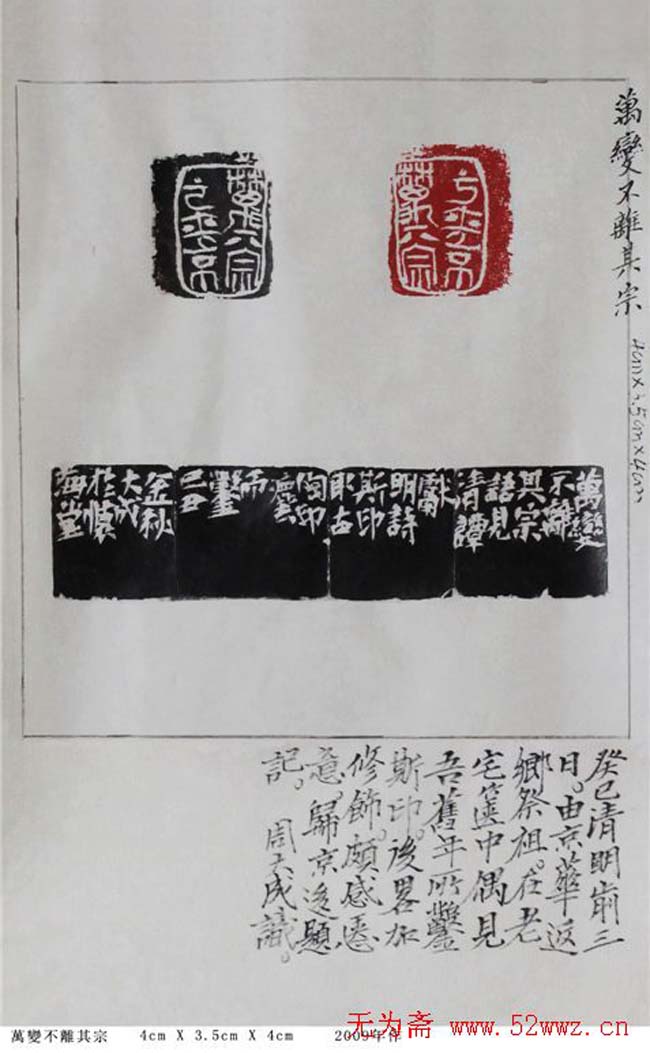 萬變不離其宗
4cm×3.5cm×4cm
萬變
不離
其宗
語見
清譚
獻
明詩
斯印
取古
匋印
而
鑿
己丑
金秋
大成
於慎
海堂
癸巳清明前三
日。由京華返
鄉祭祖。在老
宅篋中偶見
吾舊年所鑿
斯印。後畧加
修飾。頗感愜
意。歸京遂題
記。周大成識。
无为斋 www.52wwz.cn
萬變不離其宗 4cm X 3.5cm X 4cm 2009年作